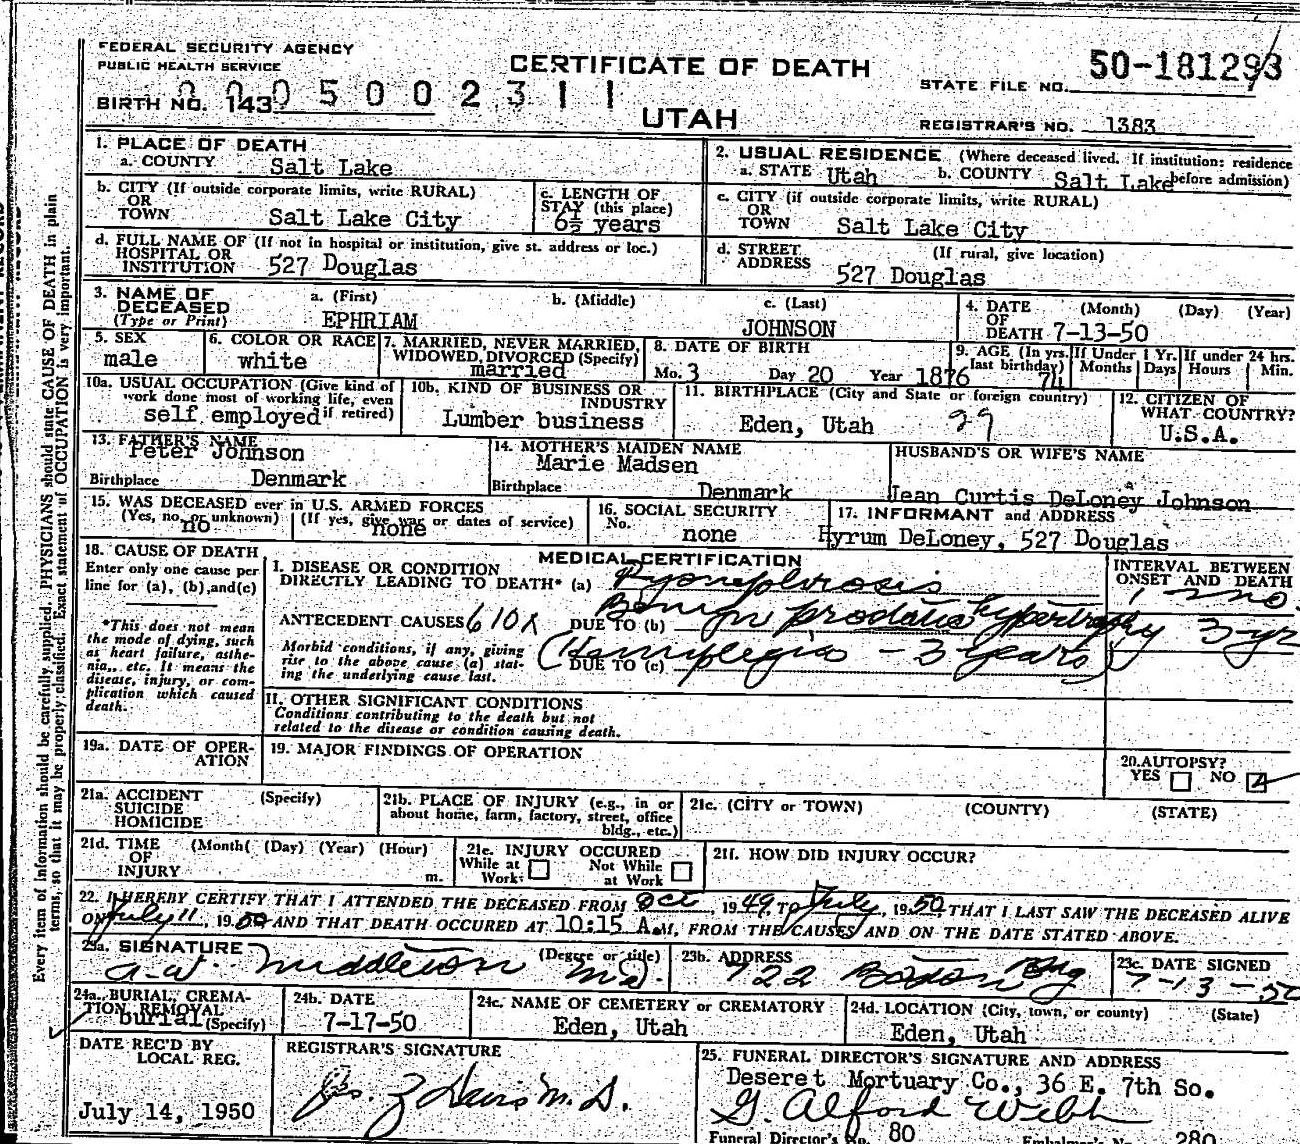 FEDERAL SECURITY AGENCY
PUBLIC HEALTH SERVICE
CERTIFICATE OF DEATH
UTAH
STATE FILE NO. 50-181293
BIRTH NO. 143
0005002311
REGISTRAR'S NO. 1383
1. PLACE OF DEATH
a. COUNTY Salt Lake
2. USUAL RESIDENCE (Where deceased lived. If institution: residence before admission)
a. STATE Utah b. COUNTY Salt Lake
b. CITY (If outside corporate limits, write RURAL)
OR
TOWN Salt Lake City
c. LENGTH OF
STAY (this place)
6½ years
c. CITY (if outside corporate limits, write RURAL)
OR
TOWN Salt Lake City
d. FULL NAME OF (If not in hospital or institution, give st. address or loc.)
HOSPITAL OR
INSTITUTION 527 Douglas
d. STREET (If rural, give location)
ADDRESS 527 Douglas
3. NAME OF a. (First) b. (Middle) c. (Last)
DECEASED
(Type or Print) EPHRIAM JOHNSON
4. DATE (Month) (Day) (Year)
OF
DEATH 7-13-50
5. SEX
male
6. COLOR OR RACE
white
7. MARRIED, NEVER MARRIED,
WIDOWED, DIVORCED (Specify)
married
8. DATE OF BIRTH
Mo. 3 Day 20 Year 1876
9. AGE (In yrs. last birthday) 74
If Under 1 Yr.
Months Days
If under 24 hrs.
Hours Min.
10a. USUAL OCCUPATION (Give kind of
work done most of working life, even
if retired)
self employed
10b. KIND OF BUSINESS OR
INDUSTRY
Lumber business
11. BIRTHPLACE (City and State or foreign country)
Eden, Utah 29
12. CITIZEN OF
WHAT COUNTRY?
U.S.A.
13. FATHER'S NAME
Peter Johnson
Birthplace Denmark
14. MOTHER'S MAIDEN NAME
Marie Madsen
Birthplace Denmark
HUSBAND'S OR WIFE'S NAME
Jean Curtis DeLoney Johnson
15. WAS DECEASED ever in U.S. ARMED FORCES
(Yes, no, or unknown) (If yes, give war or dates of service)
no none
16. SOCIAL SECURITY
No.
none
17. INFORMANT and ADDRESS
Hyrum DeLoney, 527 Douglas
18. CAUSE OF DEATH
Enter only one cause per
line for (a), (b), and (c)
*This does not mean
the mode of dying, such
as heart failure, asthe-
nia, etc. It means the
disease, injury, or com-
plication which caused
death.
MEDICAL CERTIFICATION
I. DISEASE OR CONDITION
DIRECTLY LEADING TO DEATH* (a) Pyonephrosis
ANTECEDENT CAUSES 610X DUE TO (b) Benign prostatic hypertrophy 3 yr
Morbid conditions, if any, giving
rise to the above cause (a) stat-
ing the underlying cause last.
DUE TO (c) (Hemiplegia - 3 years)
INTERVAL BETWEEN
ONSET AND DEATH
1 mo.
II. OTHER SIGNIFICANT CONDITIONS
Conditions contributing to the death but not
related to the disease or condition causing death.
19a. DATE OF OPER-
ATION
19. MAJOR FINDINGS OF OPERATION
20. AUTOPSY?
YES NO
21a. ACCIDENT (Specify)
SUICIDE
HOMICIDE
21b. PLACE OF INJURY (e.g., in or
about home, farm, factory, street, office
bldg., etc.)
21c. (CITY or TOWN) (COUNTY) (STATE)
21d. TIME (Month( (Day) (Year) (Hour)
OF
INJURY m.
21e. INJURY OCCURED
While at Work Not While at Work
21f. HOW DID INJURY OCCUR?
22. I HEREBY CERTIFY THAT I ATTENDED THE DECEASED FROM Oct, 1949, TO July, 1950 THAT I LAST SAW THE DECEASED ALIVE
ON July 11, 1950 AND THAT DEATH OCCURED AT 10:15 A.M, FROM THE CAUSES AND ON THE DATE STATED ABOVE.
23a. SIGNATURE (Degree or title)
A.W. Middleton MD
23b. ADDRESS
722 Boston Bldg
23c. DATE SIGNED
7-13-50
24a. BURIAL, CREMA-
TION REMOVAL
burial (Specify)
24b. DATE
7-17-50
24c. NAME OF CEMETERY or CREMATORY
Eden, Utah
24d. LOCATION (City, town, or county) (State)
Eden, Utah
DATE REC'D BY
LOCAL REG.
July 14, 1950
REGISTRAR'S SIGNATURE
M.D.
25. FUNERAL DIRECTOR'S SIGNATURE AND ADDRESS
Deseret Mortuary Co., 36 E. 7th So.
G. Alford Webb
Funeral Director's No. 80 Embalmer's No. 280
Every item of information should be carefully supplied. PHYSICIANS should state CAUSE OF DEATH in plain
terms, so that it may be properly classified. Exact statement of OCCUPATION is very important.